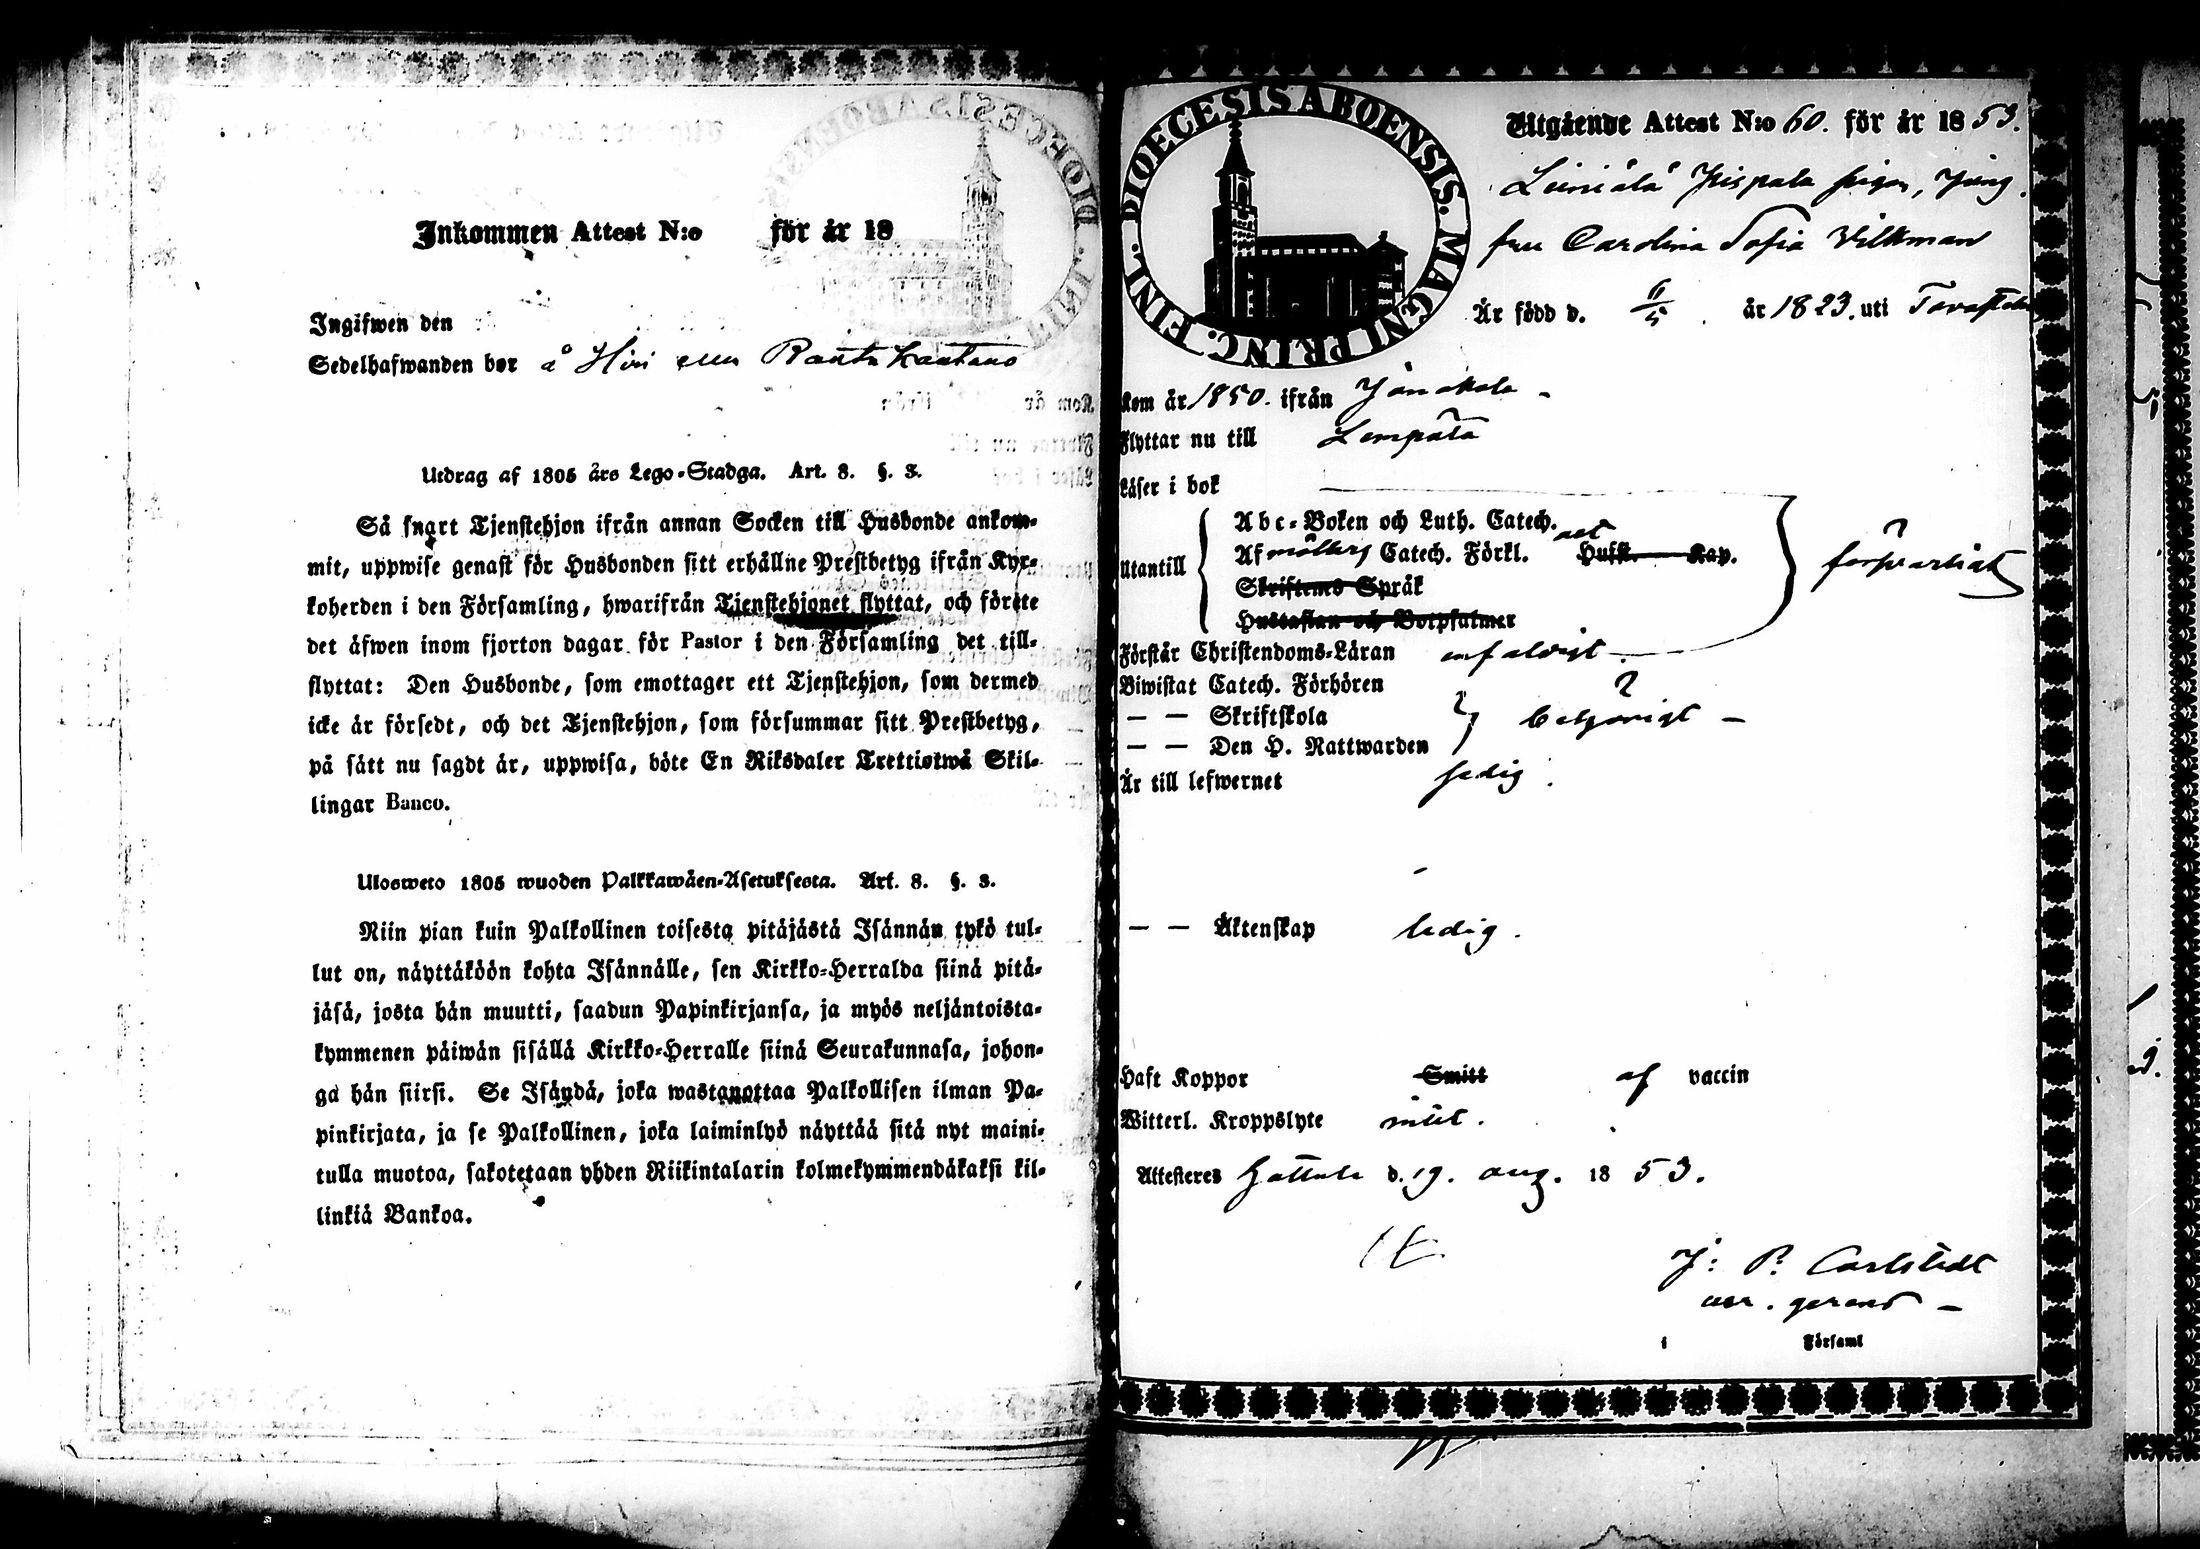 Inkommen Attest N:o för år 18
Ingifwen den
Sedelhafwanden bor å Hiri eller Rantakantano
Utdrag af 1805 års Lego-Stadga. Art. 8. §. 3.
Så snart Tjenstehjon ifrån annan Socken till Husbonde ankom-
mit, uppwise genast för Husbonden sitt erhållne Prestbetyg ifrån Kyr-
koherden i den Församling, hwarifrån Tjenstehjonet flyttat, och förete
det äfwen inom fjorton dagar för Pastor i den Församling det till-
flyttat: Den Husbonde, som emottager ett Tjenstehjon, som dermed
icke är försedt, och det Tjenstehjon, som försummar sitt Prestbetyg,
på sätt nu sagdt är, uppwisa, böte En Riksdaler Trettiotwå Skil-
lingar Banco.
Ulosweto 1805 wuoden Palkkawäen-Asetuksesta. Art. 8. §. 3.
Niin pian kuin Palkollinen toisesta pitäjästä Isännän tykö tul-
lut on, näyttäköön kohta Isännälle, sen Kirkko-Herralda siinä pitä-
jäsä, josta hän muutti, saadun Papinkirjansa, ja myös neljäntoista-
kymmenen päiwän sisällä Kirkko-Herralle siinä Seurakunnasa, johon-
ga hän siirsi. Se Isändä, joka wastanottaa Palkollisen ilman Pa-
pinkirjata, ja se Palkollinen, joka laiminlyö näyttää sitä nyt maini-
tulla muotoa, sakotetaan yhden Riikintalarin kolmekymmendäkaksi kil-
linkiä Bankoa.
DIOECESIS ABOENSIS. MAGNI PRINC. FINL.
Utgående Attest N:o 60. för år 1853.
pigan, Jung
fru Carolina Sofia Wilkman
Är född d. 6/5 år 1823. uti Tavastehus
Kom år 1850. ifrån Janakala
Flyttar nu till Lempäla
Läser i bok
Abc-Boken och Luth. Catech.
Utantill Af möllers Catech. Förkl. Husst. Kap. förswarligt
Skriftens Språk
Hustaflan och Botpsalmer
Förstår Christendoms-Läran enfaldigt
Biwistat Catech. Förhören
— — Skriftskola behörigt
— — Den H. Nattwarden
Är till lefwernet sedig.
— — Äktenskap ledig.
Haft Koppor Smitt af vaccin
Witterl. Kroppslyte intet.
Attesteres Hattula d. 19. aug. 1853.
J: P. Carlstedt
ver. gerens
i Församl